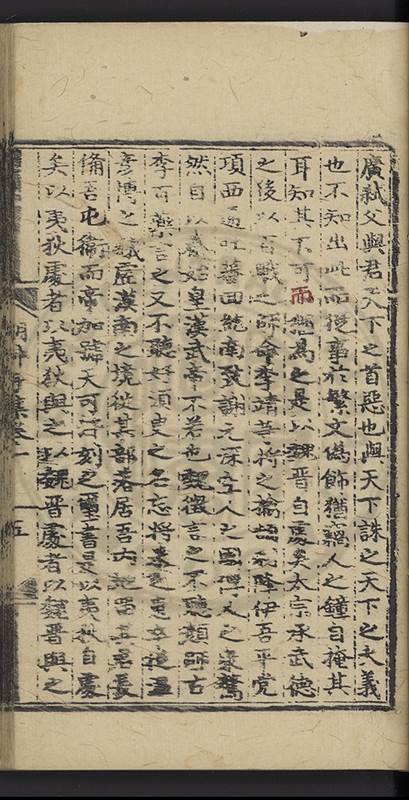 廣弑父與君天下之首惡也與天下誅之天下之大義
也不知出此而從事於繁文僞飾猶竊人之鐘自掩其
耳知其不可而為之是以魏晉自處矣太宗承武德
之後以百戰之師命李靖等將之擒頡利降伊吾平党
項西通吐蕃回紇南致謝元深立人之國擇人之豪驁
然自以秦始皇漢武帝不若也魏徵言之不聽顏師古
李百藥言之又不聽好須臾之名忘將來之患卒從溫
彥博之議虛漢南之境從其部落居吾內地習
備吾屯衞而帝加號天可汗刻之璽書是以夷狄自處
矣以夷狄處者以夷狄與之以魏晉處者以魏晉與之
集卷一
五